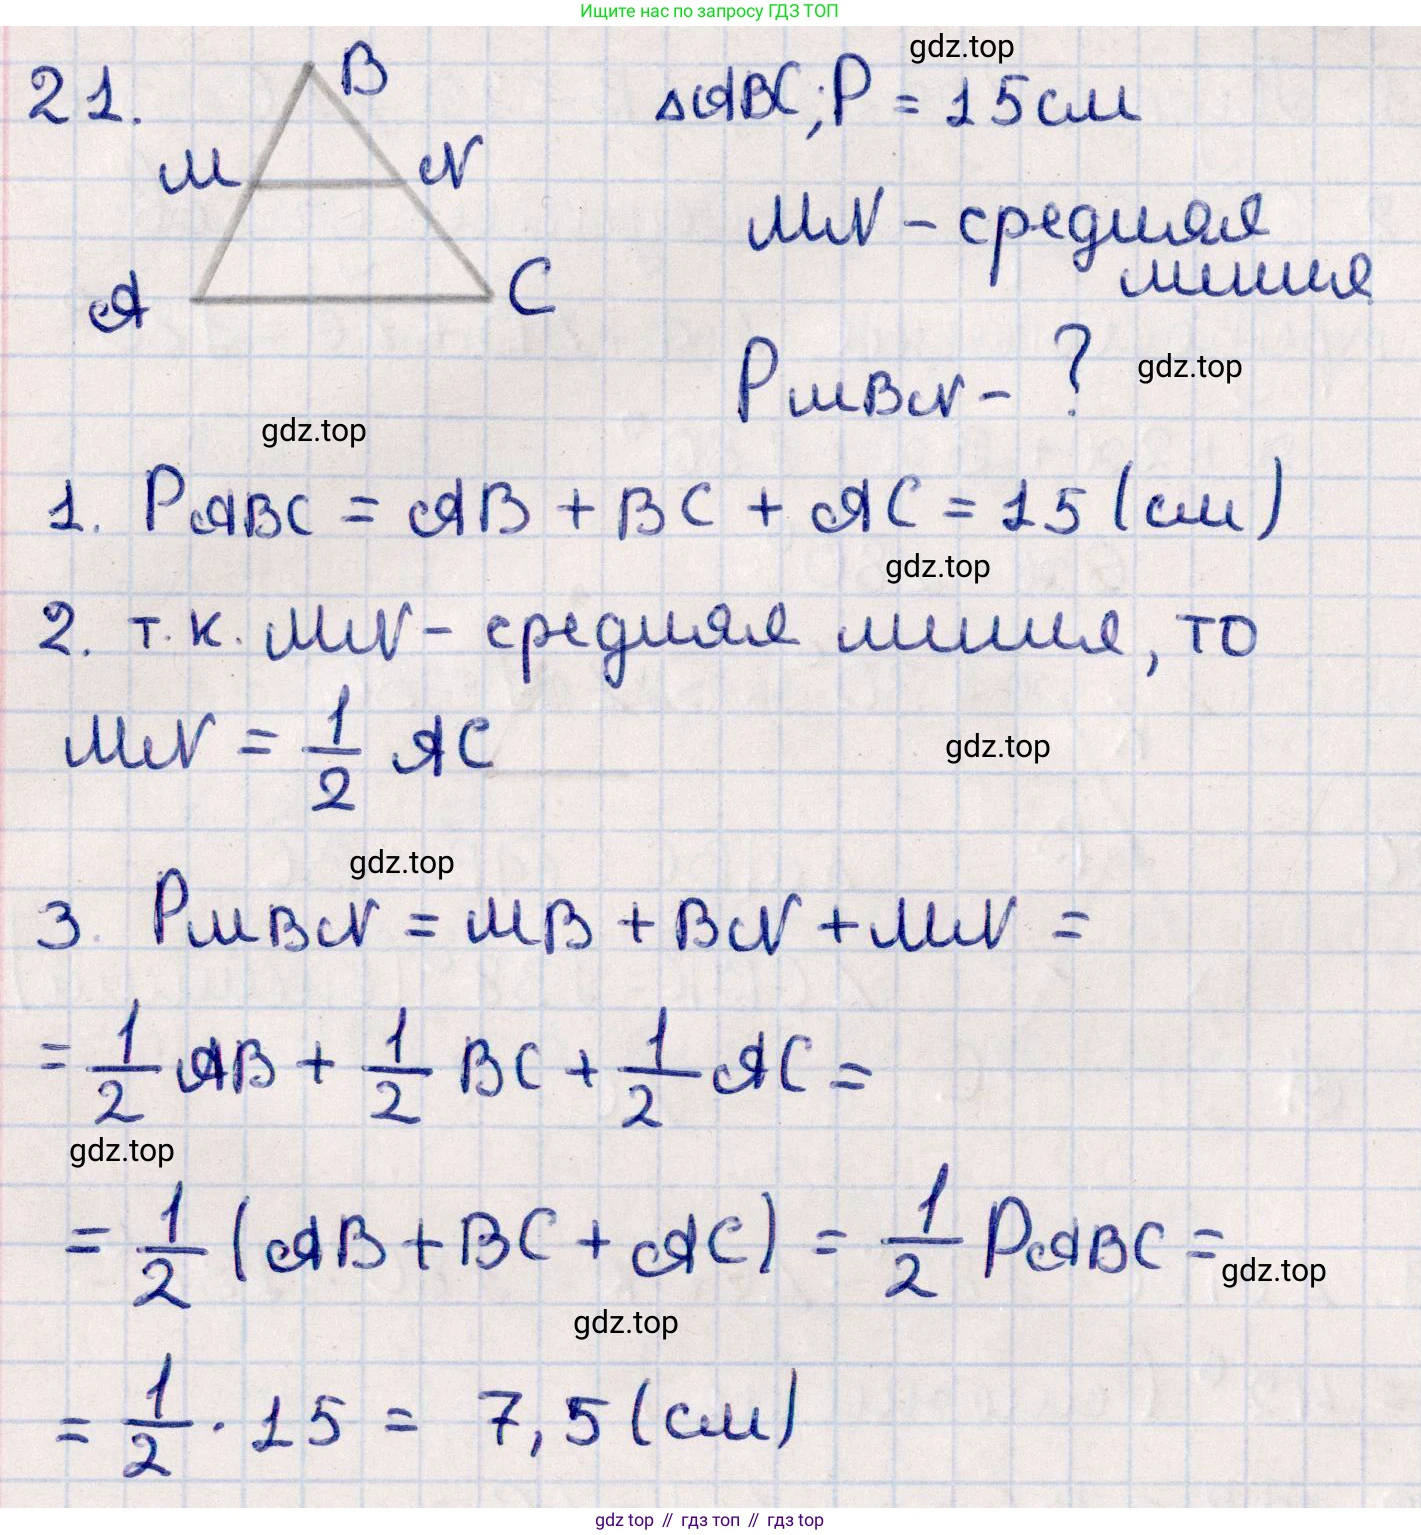 Ищите нас по запросу ГДЗ ТОП
gdz.top
21.
B
M
N
A
C
△ABC; P = 15 см
MN - средняя
линия
gdz.top
P MBN - ?
gdz.top
1. P ABC = AB + BC + AC = 15 (см)
gdz.top
2. т.к. MN - средняя линия, то
MN = 1/2 AC
gdz.top
gdz.top
3. P MBN = MB + BN + MN =
= 1/2 AB + 1/2 BC + 1/2 AC =
gdz.top
= 1/2 (AB + BC + AC) = 1/2 P ABC =
gdz.top
gdz.top
= 1/2 · 15 = 7,5 (см)
gdz top // гдз топ // гдз top